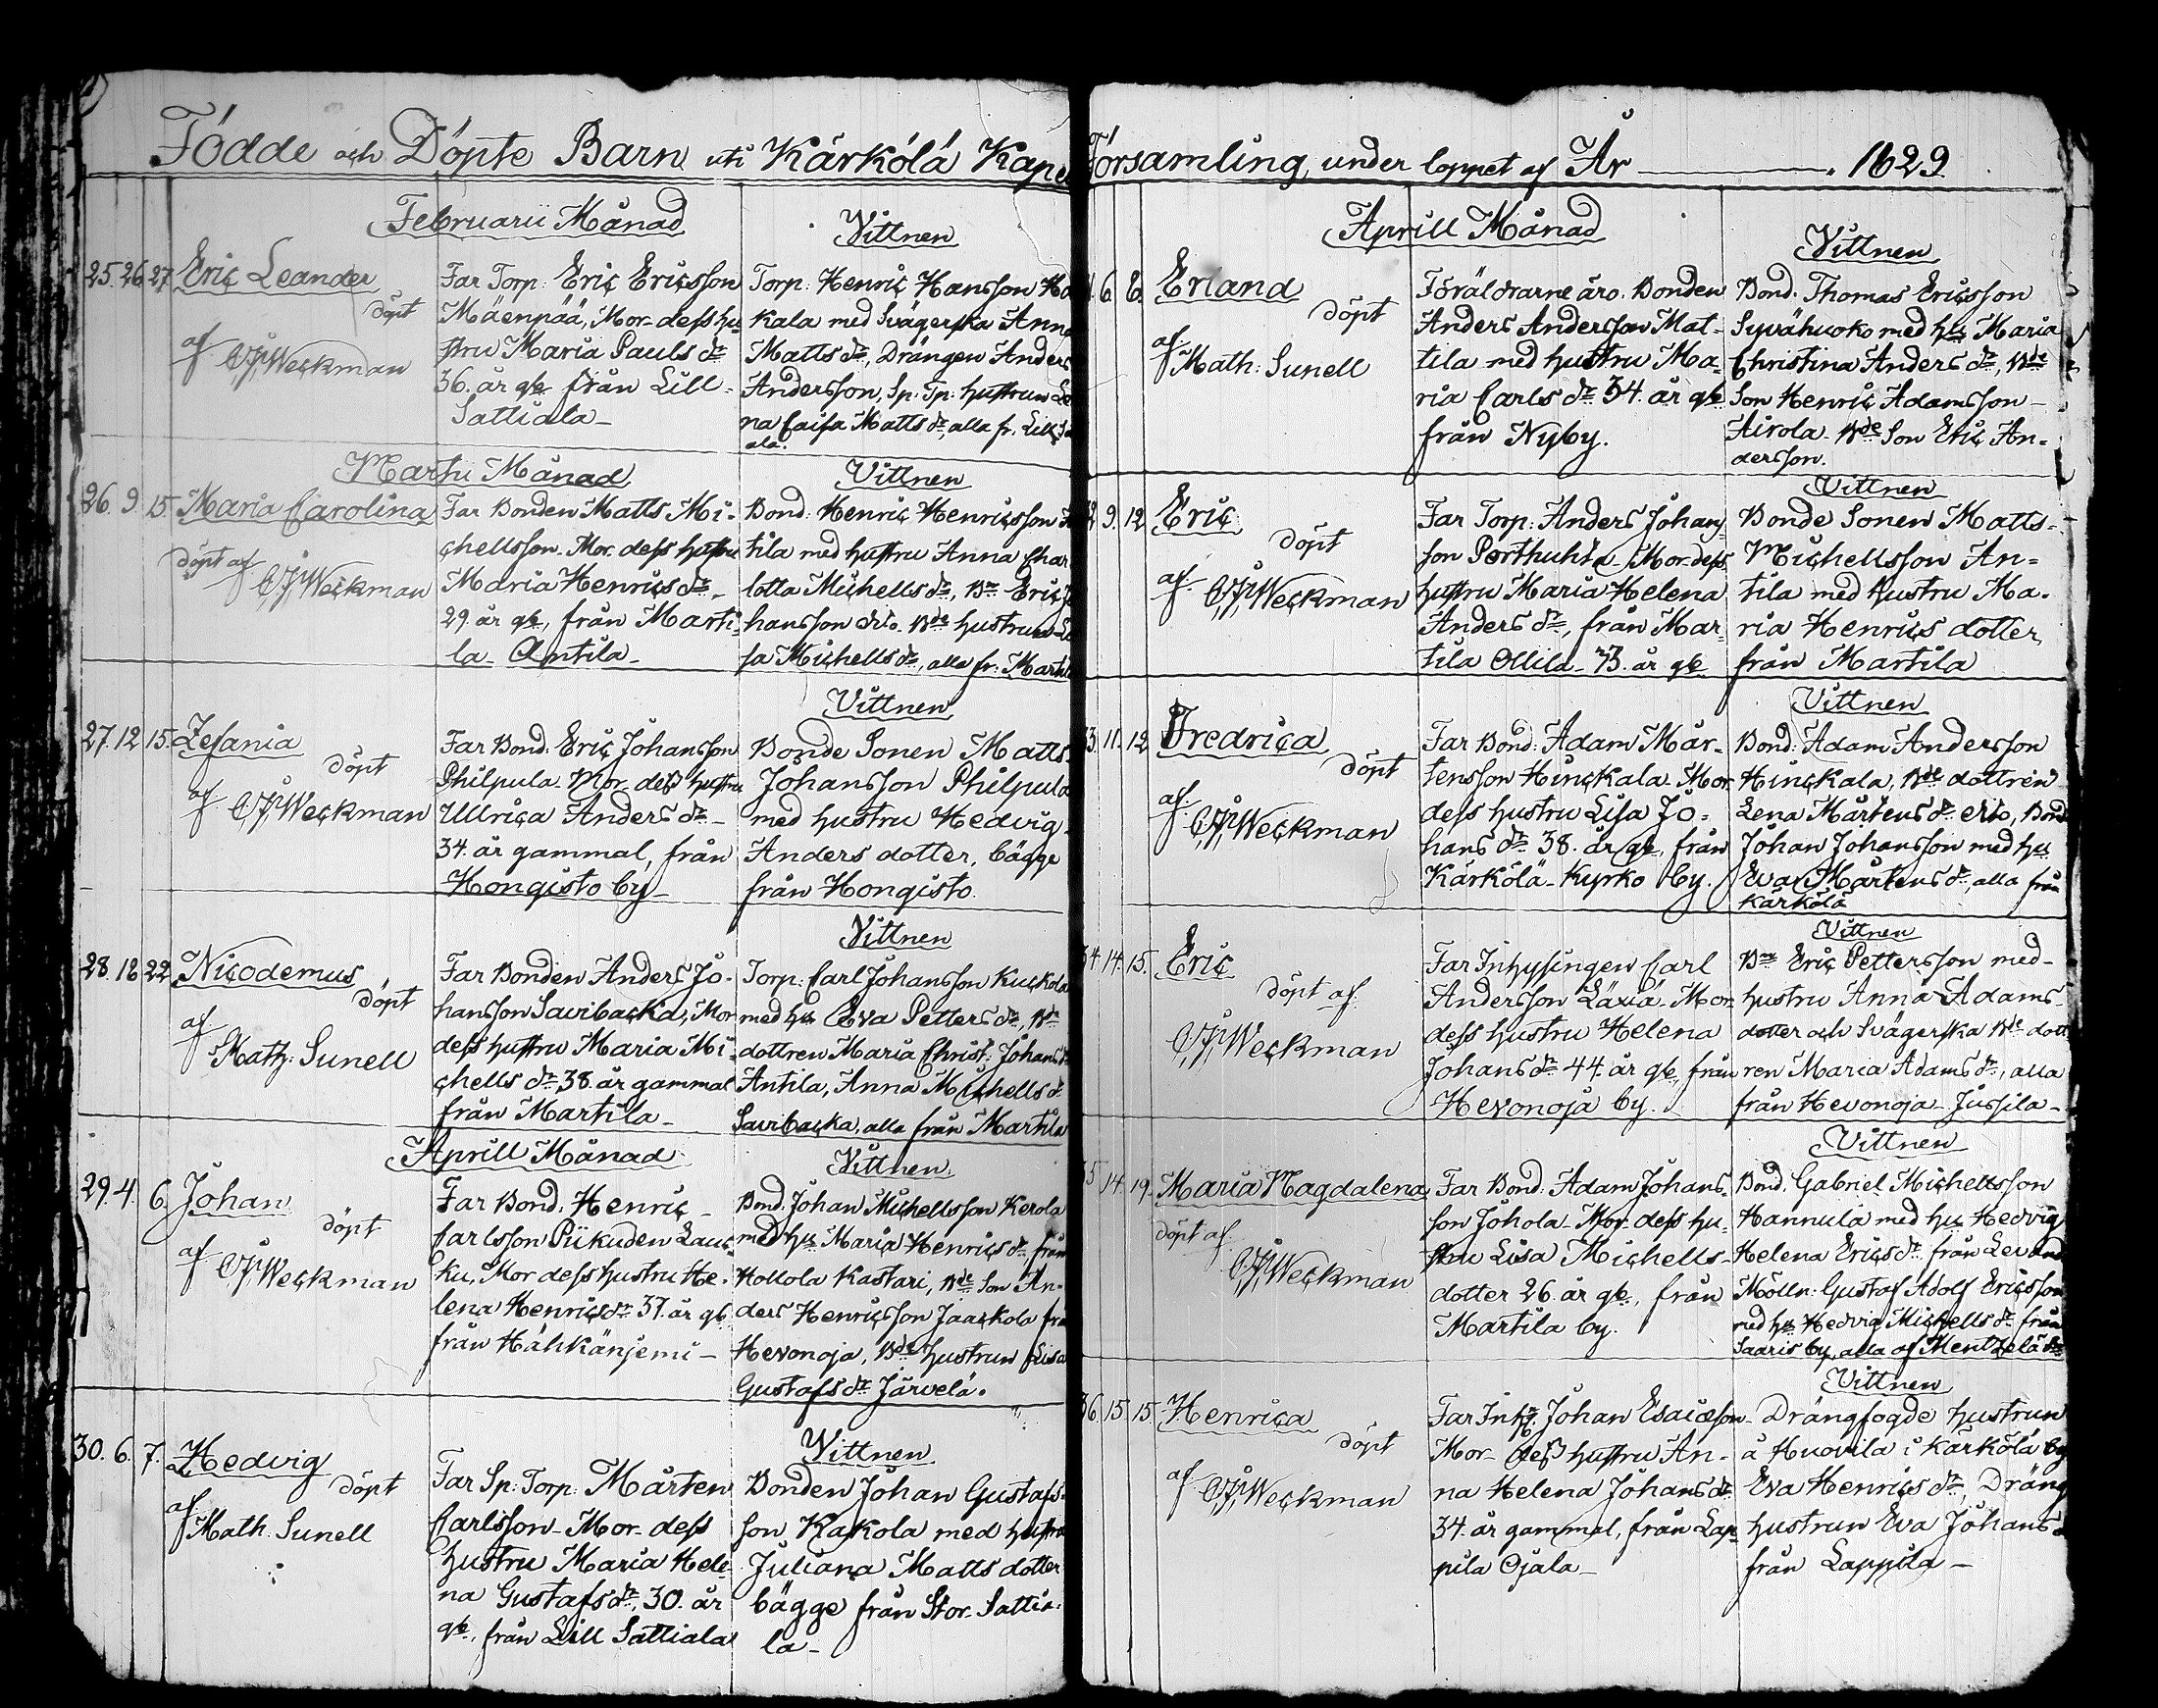 Födde och Döpte Barn uti Kärkölä Kape
Februarii Månad
Vittnen
25. 26 27. Eric Leander
döpt
af
C J Weckman
Far Torp: Eric Ericsson
Mäenpää, Mor dess hu
stru Maria Pauls dr
36. år gl. från Lill
Sattiala
Torp: Henric Hansson
kala med Svägerska Anna
Matts dr, Drängen Anders
Andersson, Sp: Tp: hustrun Le
na Caisa Matts dr, alla fr. Lill
ala.
Martii Månad
Vittnen
26. 9. 15. Maria Carolina
döpt af
C J Weckman
Far Bonden Matts Mi-
chellsson. Mor dess hustru
Maria Henrics dr
29. år gl., från Marti-
la Antila
Bond: Henric Henricsson
tila med hustru Anna Char
lotta Michells dr, Bn Eric Jo
hansson dito. Bde hustrun Li
sa Michells dr, alla fr: Martila
Vittnen
27. 12 15. Zefania
döpt
af C J Weckman
Far Bond. Eric Johansson
Philpula. Mor dess hustru
Ullrica Anders dr
34. år gammal, från
Hongisto by
Bonde Sonen Matts
Johansson Philpula
med hustru Hedvig
Anders dotter, bägge
från Hongisto.
Vittnen
28. 18 22. Nicodemus
döpt
af
Math: Sunell
Far Bonden Anders Jo-
hansson Savibacka, Mor
dess hustru Maria Mi-
chells dr 38. år gammal
från Martila
Torp. Carl Johansson Kuckola
med hu Eva Petters dr, Bde
dottren Maria Christ: Johans dr
Antila, Anna Michells dr
Savibacka, alla från Martila
Aprill Månad
Vittnen
29. 4. 6. Johan
döpt
af C J Weckman
Far Bond. Henric
Carlsson Piikuden Lauc-
ku, Mor dess hustru He-
lena Henrics dr 37. år gl
från Hähkänjemi
Bond. Johan Michellsson Kerola
med hu Maria Henrics dr från
Hollola Kastari, Bde Son An-
ders Henricsson Jaackola frå
Hevonoja, Bde hustrun Lisa
Gustafs dr Järvelä.
30. 6. 7. Hedvig
döpt
af
Math. Sunell
Far Sp: Torp: Mårten
Carlsson. Mor dess
hustru Maria Hele
na Gustafs dr, 30. år
gl., från Lill Sattiala
Vittnen
Bonden Johan Gustafs-
son Kakola med hustru
Juliana Matts dotter
bägge från Stor Sattia-
la
Församling, under loppet af År 1829
Aprill Månad
Vittnen
1. 6. 8. Erland
döpt
af
Math: Sunell
Föräldrarne äro Bonden
Anders Andersson Mat-
tila med hustru Ma-
ria Carls dr 34. år gl
från Nyby.
Bond. Thomas Ericsson
Syvähuoko med hu Maria
Christina Anders dr, Bde
Son Henric Adamsson
Airola. Bde Son Eric An-
dersson.
Vittnen
2. 9. 12. Eric
döpt
af C J Weckman
Far Torp: Anders Johans
son Porthuhta. Mor dess
hustru Maria Helena
Anders dr, från Mar-
tila Ollila år gl
Bonde Sonen Matts
Michellsson An-
tila med hustru Ma-
ria Henrics dotter,
från Martila
Vittnen
33. 11. 12 Fredrica
döpt
af
C J Weckman
Far Bond: Adam Mår-
tensson Hinckala. Mor
dess hustru Lisa Jo-
hans dr 38. år gl, från
Kärkölä Kyrko by.
Bond: Adam Andersson
Hinckala, Bde dottren
Lena Mårtens dr dito, Bond
Johan Johansson med hu
Eva Mårtens dr, alla från
Kärkölä
Vittnen
34. 14. 15. Eric
döpt af
C J Weckman
Far Inhysingen Carl
Andersson Läxiä. Mor
dess hustru Helena
Johans dr 44. år gl., från
Hevonoja by.
Bn Eric Pettersson med
hustru Anna Adams
dotter och Svägerska Bde dott
ren Maria Adams dr, alla
från Hevonoja Jussila
Vittnen
35 14. 19. Maria Magdalena
döpt af
C J Weckman
Far Bond. Adam Johans-
son Johola. Mor dess hu-
stru Lisa Michells-
dotter 26. år gl., från
Martila by.
Bond. Gabriel Michellsson
Hannula med hu Hedvig
Helena Erics dr från
Mölln: Gustaf Adolf Ericsson
med hu Hedvig Michells dr från
Saaris by, alla af Mentzelä
Vittnen
36. 15. 15. Henrica
döpt
af C J Weckman
Far Inh. Johan Esaicsson
Mor dess hustru An-
na Helena Johans dr
34. år gammal, från Lap
pila Ojala
Drängfogde hustrun
å Huovila i Kärkölä by
Eva Henrics dr, Dräng
hustrun Eva Johans d
från Lappila